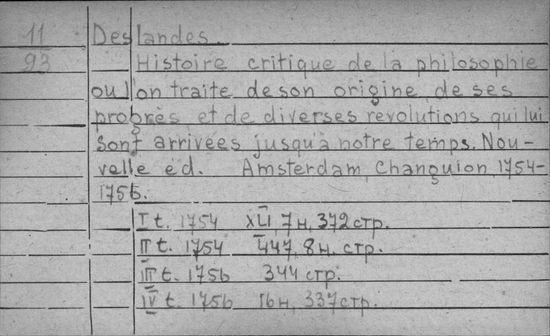 11
93
Deslandes.
Histoire critique de la philosophie
ou l'on traite de son origine de ses
progrès et de diverses revolutions qui lui
sont arrivées jusqu'a notre temps. Nou-
velle ed. Amsterdam, Changuion 1754-
1756.
I t. 1754 XLI, 7н, 372 стр.
II t. 1754 447, 8н. стр.
III t. 1756 344 стр.
IV t. 1756 16н, 337 стр.